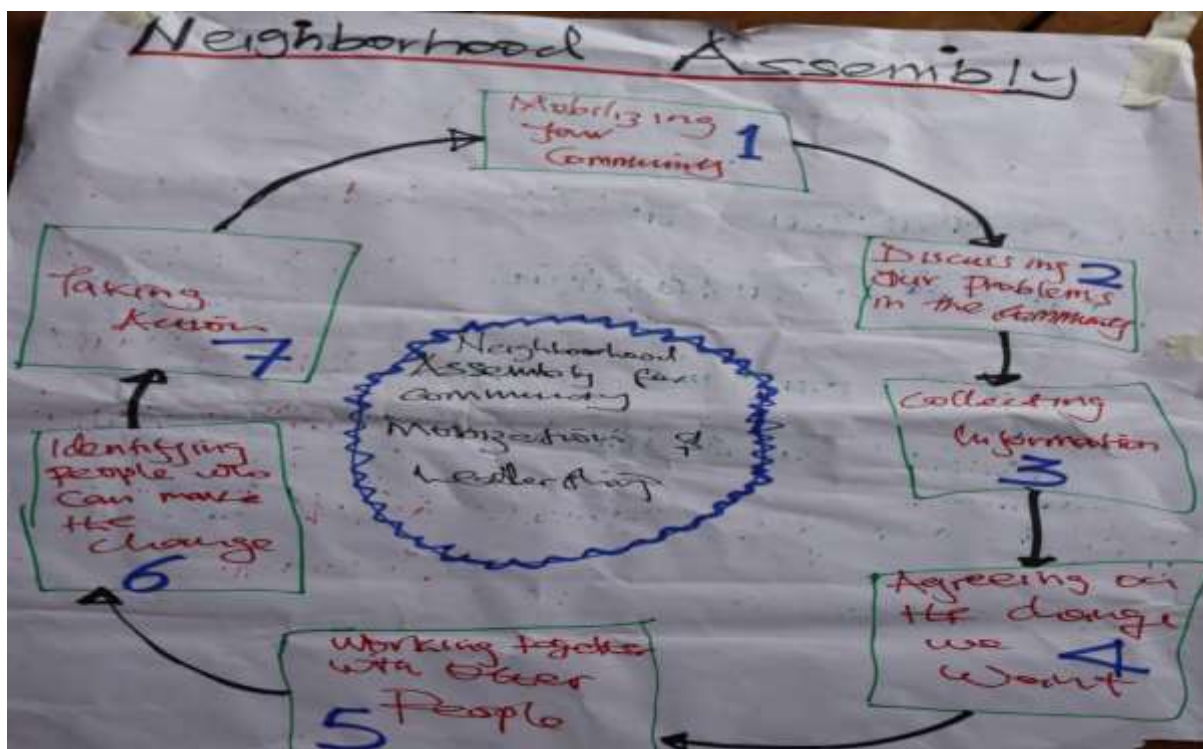 Neighborhood Assembly
Mobilizing
your
Community. 1
Discussing 2
Our Problems
in the Community.
Collecting
Information
3
Agreeing on
the change
we
Want 4
Working together
with other
People
5
Identifying
people who
can make
the
change
6
Taking
Action
7
Neighborhood
Assembly for
community
Mobization &
Leadership